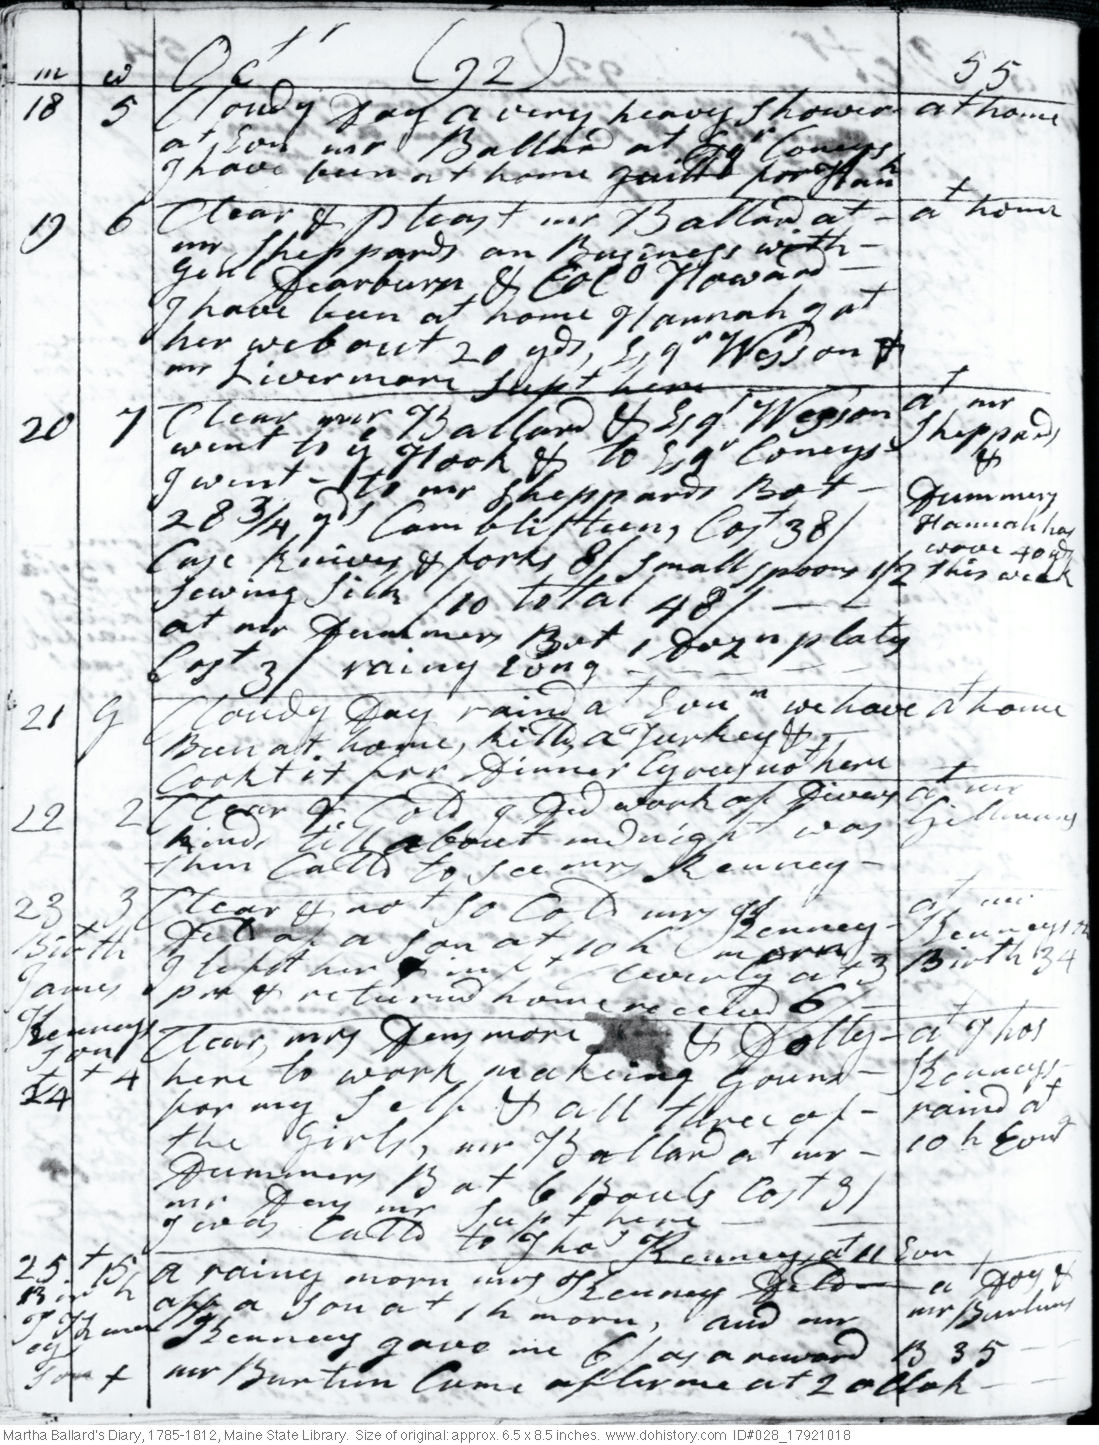 m w Oct^r (92) 55
18 5 Cloudy Day a very heavy Shower at home
at Evn mr Ballard at Esq^r Coneys
I have been at home quilld for Hanh
19 6 Clear & Pleast mr Ballard at - at home
mr Sheppards on Business with -
Genl Dearburn & Colo Howard -
I have been at home Hannah got
her web out 20 yds, Esq^r Wesson &
mr Livermore Supt here
20 7 Clear mr Ballard & Esq^r Wesson at mr
went to ye Hook & to Esq^r Coneys Sheppards
I went - to mr Sheppards Bot - &
28 3/4 yds Camblisteen, Cost 38/ Dummers
Case knives & forks 8/ Small spoons 1/2 Hannah has
Sewing Silk /10 total 48/ - - wove 40 yds
at mr Dummers Bot 1 Dozn plats this week
Cost 3/ rainy Evng - - - -
21 G Cloudy Day raind at Evn^n we have at home
Been at home, killd a Turkey &
Cookt it for Dinner Cyrus not here
22 2 Clear & Cold I Did work of Divers at mr
kinds till about midnight was Gillmans
then Calld to see mrs Kenney -
23 3 Clear & not So Cold mrs Kenney at mr
Birth Deld of a Son at 10 h morn Kenneys
James I left her & inft cleverly at 3 Birth 34
Kenneys pm & returnd home received 6/ -
Son
24 + 4 Clear, mrs Densmore & Dolly - at Thos
here to work makeing gouns - Kenneys
for my Self & all three of - raind at
the Girls, mr Ballard at mr - 10 h Evn
Dummers Bot 6 Bouls Cost 3/
mr Day mr Supt here -
I was Calld to Thos Kenneys at 11 Evn
25 + 5 a rainy morn mrs Kenney Deld - at Doy &
Birth off a Son at 1 h morn, and mr mr Burtuns
T Kenneys Kenney gave me 6/ as a reward B 35 - -
Son + mr Burtun Came after me at 2 oClok - -
Martha Ballard's Diary, 1785-1812, Maine State Library. Size of original: approx. 6.5 x 8.5 inches. www.dohistory.com ID#028_17921018